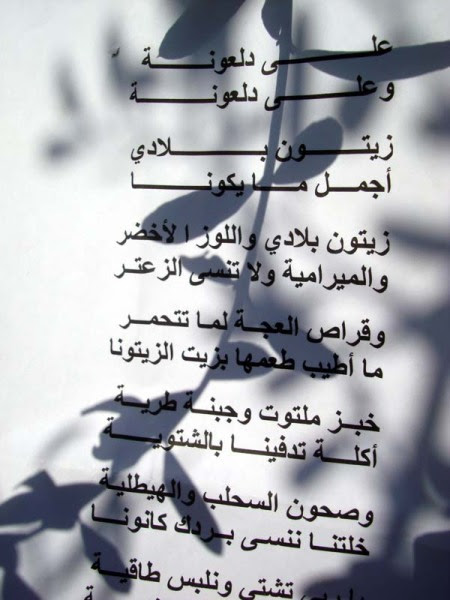 على دلعونة
وعلى دلعونة
زيتون بلادي
أجمل ما يكونا
زيتون بلادي واللوز الأخضر
والميرامية ولا تنسى الزعتر
وقراص العجة لما تتحمر
ما أطيب طعمها بزيت الزيتونا
خبز ملتوت وجبنة طرية
أكلة تدفينا بالشتوية
وصحون السحلب والهيطلية
خلتنا ننسى بردك كانونا
تشتي ونلبس طاقية